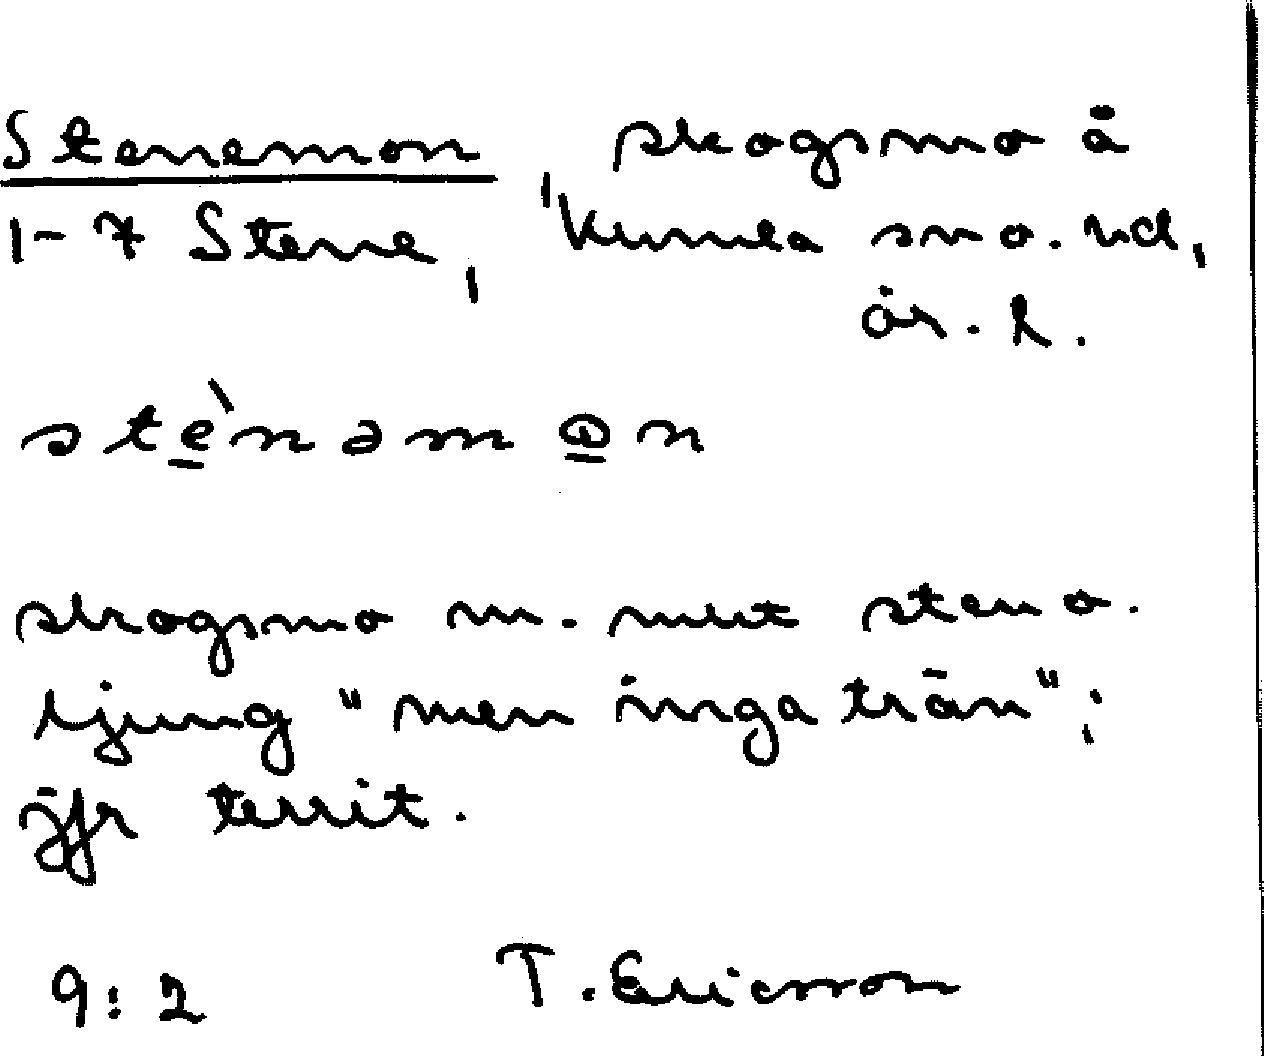 Stenemon skogsmo å
1-7 Stene, Kumla sn o. hd,
ör. l.
stè̱nəmω̱n
skogsmo m. mkt sten o.
ljung "men inga trän";
jfr territ.
9:2 T. Ericsson